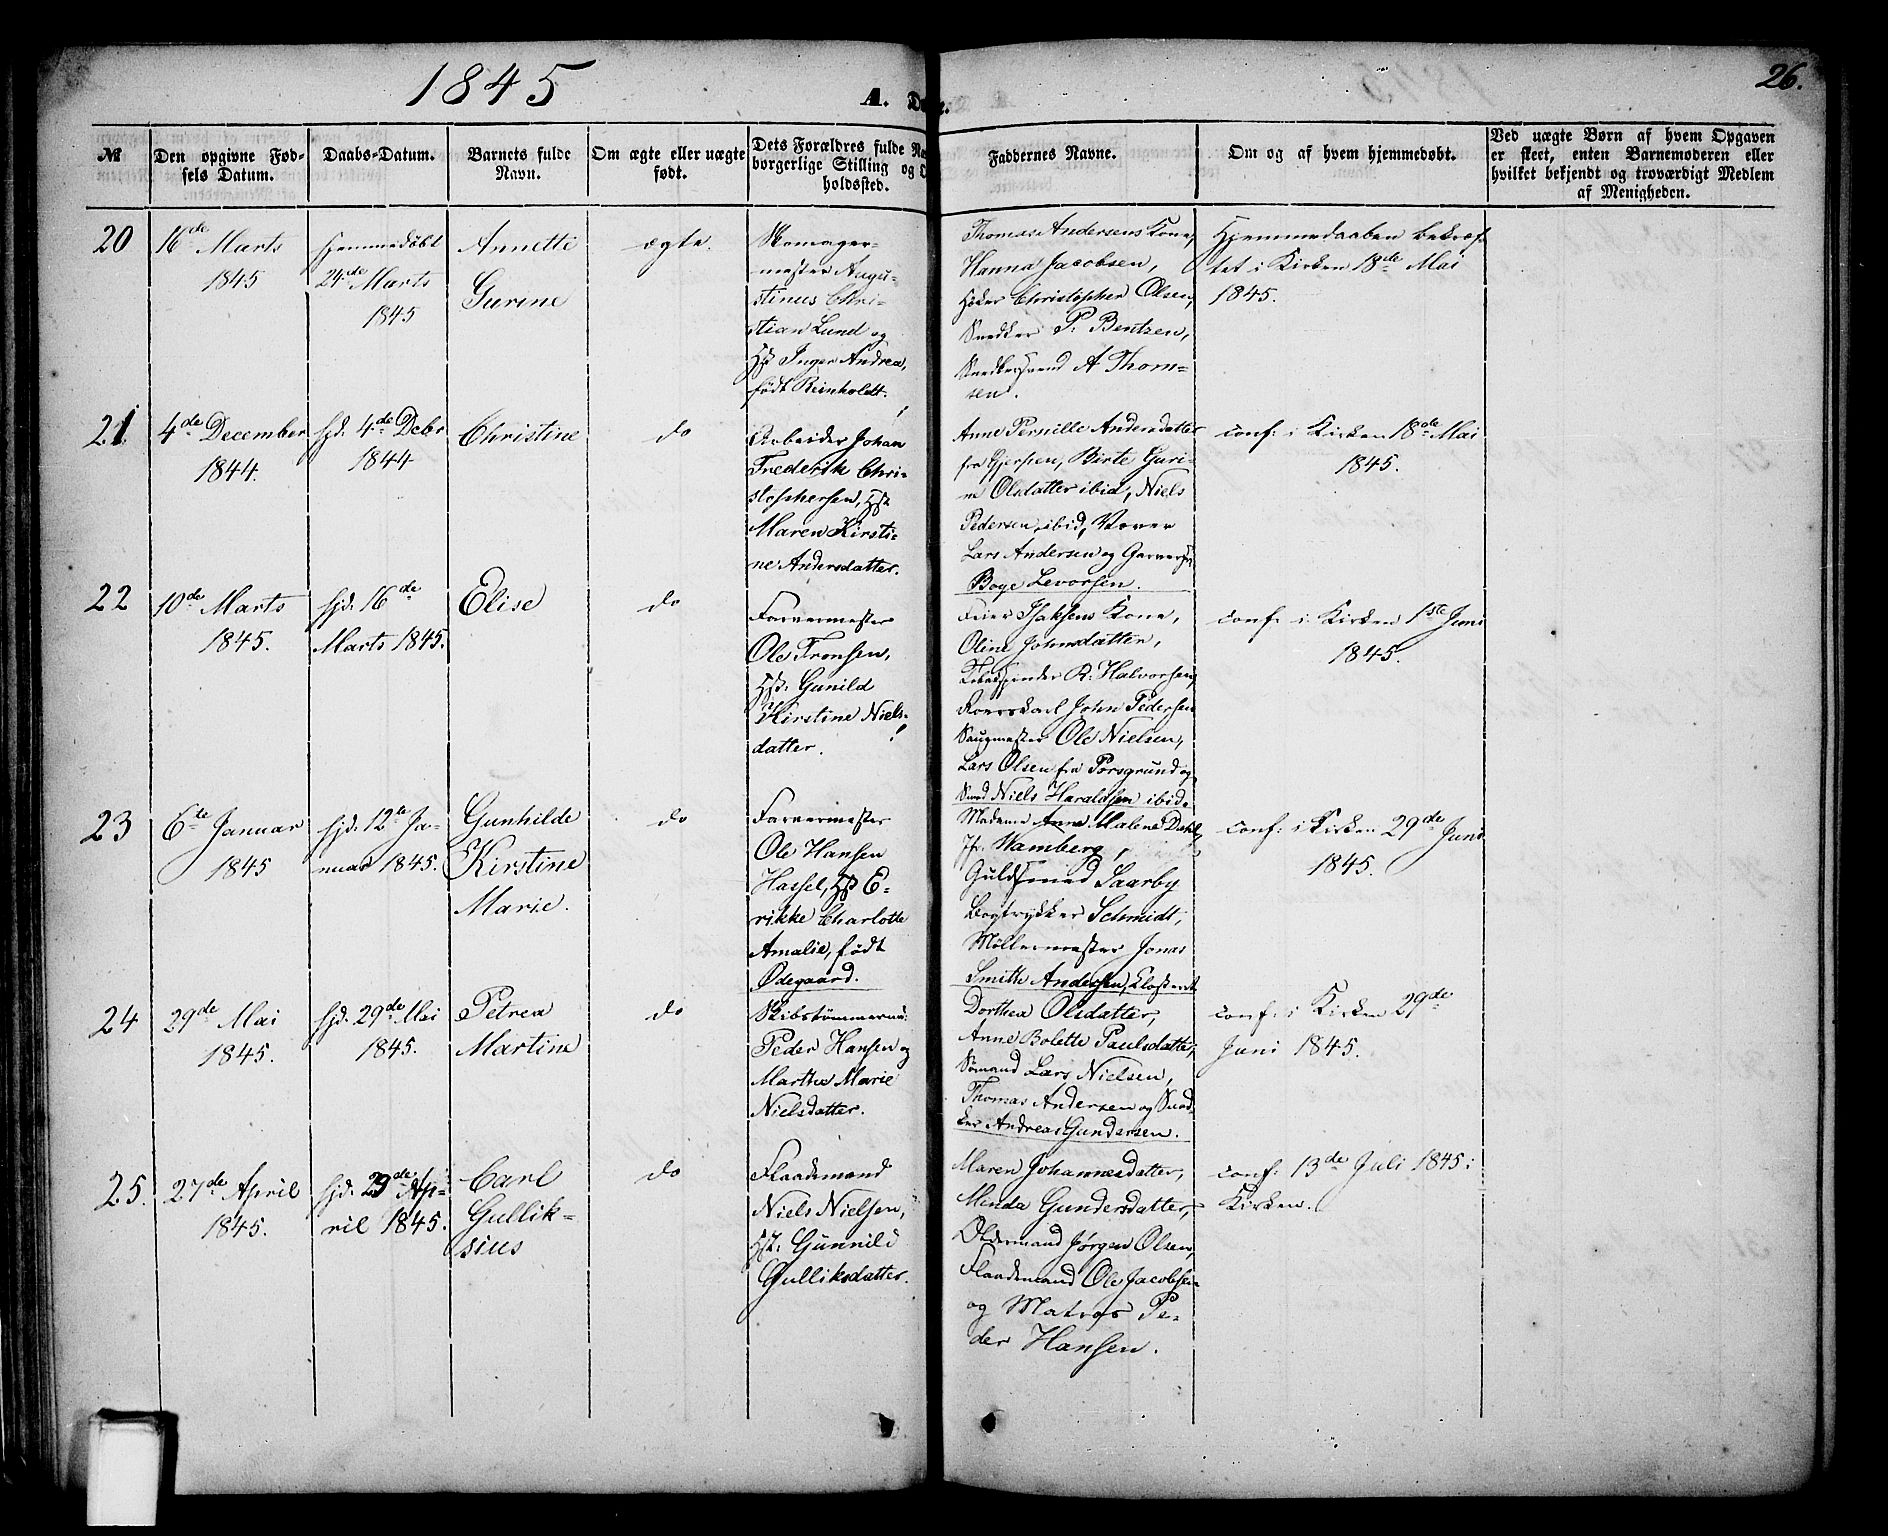 1845
A. Døbte.
26.
№
Den opgivne Fød-
sels Datum.
Daabs-Datum.
Barnets fulde
Navn.
Om ægte eller uægte
født.
Dets Forældres fulde
borgerlige Stilling og
holdssted.
Faddernes Navne.
Om og af hvem hjemmedøbt.
Ved uægte Børn af hvem Opgaven
er skeet, enten Barnemoderen eller
hvilket bekjendt og troværdigt Medlem
af Menigheden.
20
16de Marts
1845
Hjemmedøbt
24de Marts
1845
Annette
Gurine
ægte.
Skomager-
mester Augu-
stinus Chri-
stian Lund og
Hst Inger Andrea,
født Reinholdt.
Thomas Andersens Kone,
Hanna Jacobsen,
Høker Christopher Olsen,
Snedker P. Bentzen,
Snedkersvend A Thom-
sen.
Hjemmedaaben bekræf-
tet i Kirken 18de Mai
1845.
21
4de December
1844.
hjd. 4de Debr
1844
Christine
do
Arbeider Johan
Frederik Chri-
stophersen, Hst
Maren Kirsti-
ne Andersdatter.
Anne Pernille Andersdatter
fra Gjerpen, Birte Guri-
ne Olsdatter ibid, Niels
Pedersen, ibid, Væver
Lars Andersen og
Boye Levorsen.
conf: i Kirken 18de Mai
1845.
22
10de Marts
1845.
hjd. 16de
Marts 1845.
Elise
do
Farvermester
Ole Fronsen,
Hst: Gunild
Kirstine Niels-
datter.
Feier Isaksens Kone,
Oline Johnsdatter,
R. Halvorsen,
Roerskarl John Pedersen
Saugmester Ole Nielsen,
Lars Olsen fra Porsgrund og
Smed Niels Haraldsen ibid.
conf: i Kirken 1ste Juni
1845.
23
6te Januar
1845
hjd. 12te Ja-
nuar 1845.
Gunhilde
Kirstine
Marie.
do
Farvermester
Ole Hansen
Hassel, Hst E-
rikke Charlotte
Amalie, født
Ødegaard.
Madame Anne Malene Dahl,
Jfr. Wamberg,
Guldsmed Saarby
Bogtrykker Schmidt,
Møllermester Jonas
Smith Andersen, Klosteret
conf: i Kirken 29de Juni
1845.
24
29de Mai
1845.
hjd. 29de Mai
1845.
Petrea
Martine
do
Skibstømmerm:
Peder Hansen og
Marthe Marie
Nielsdatter.
Dorthea Olsdatter,
Anne Bolette Paulsdatter,
Sømand Lars Nielsen,
Thomas Andersen og Sned-
ker Andreas Gundersen.
conf: i Kirken 29de
Juni 1845.
25.
27de April
1845.
hjd. 29de Ap-
ril 1845.
Carl
Gullik-
sius
do
Flaademand
Niels Nielsen,
Hst: Gunnild
Gulliksdatter.
Maren Johannesdatter,
Minda Gundersdatter,
Oldermand Jørgen Olsen,
Flaademand Ole Jacobsen
og Matros Pe-
der Hansen.
conf: 13de Juli 1845 i
Kirken.